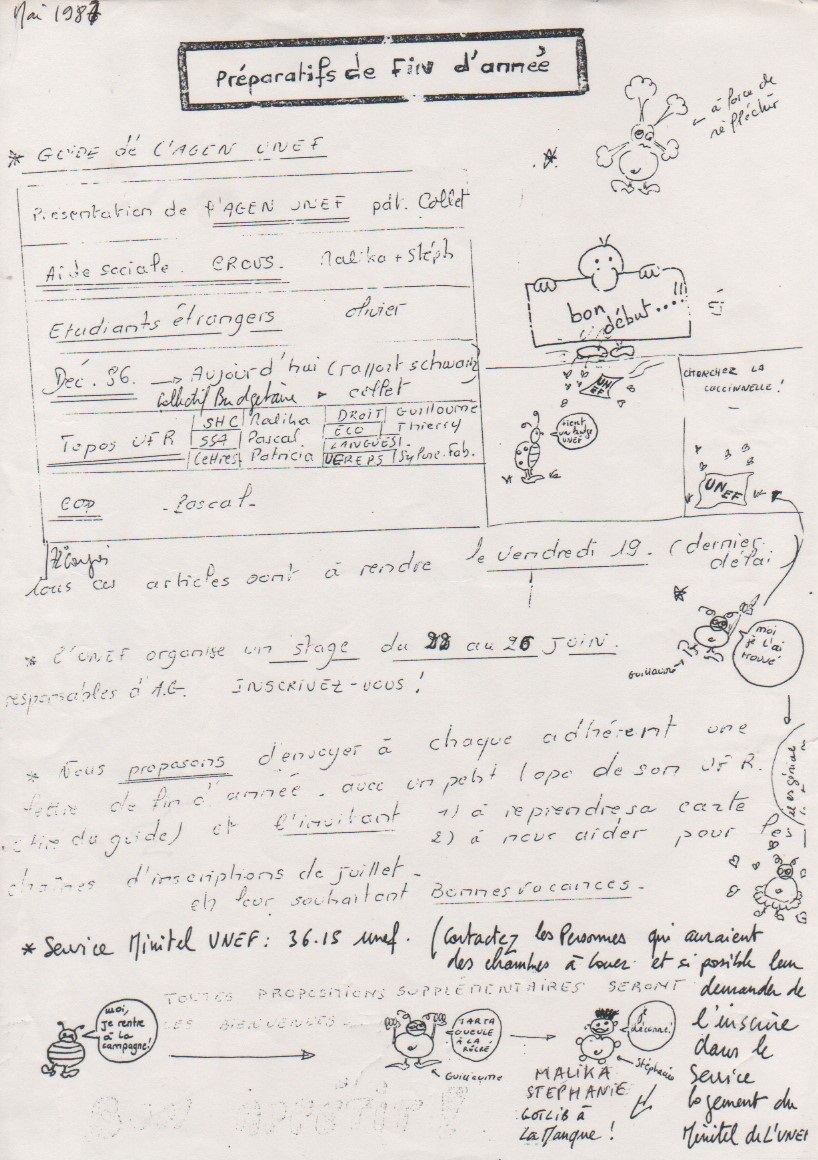 Mai 1987
Préparatifs de fin d'année
à force de
réfléchir
* GUIDE de L'AGEN UNEF
Présentation de l'AGEN UNEF pât. Collet
Aide sociale. CROUS. Malika + Stéph
Etudiants étrangers olivier
bon
début....!!
Déc. 86. → Aujourd'hui (rapport schwartz)
Collectif Budgétaire collet
Topos UFR
SHC Malika DROIT Guillaume
SSA Pascal ECO Thierry
Lettres Patricia LANGUES
UEREPS Sylvie. Fab.
Pascal
UNEF
tient
un badge
UNEF
CHERCHEZ LA
COCCINNELLE!
UNEF
tous ces articles sont à rendre le vendredi 19. (dernier
délai)
moi
je l'ai
trouvé
Guillaume
* L'UNEF organise un stage du 22 au 26 JUIN.
responsables d'A.G. INSCRIVEZ-VOUS!
* Nous proposons d'envoyer à chaque adhérent une
lettre de fin d'année avec un petit topo de son UFR.
(tiré du guide) et l'invitant 1) à reprendre sa carte
2) à nous aider pour les
chaînes d'inscriptions de juillet.
en leur souhaitant Bonnes vacances.
* Service Minitel UNEF: 36.15 unef. (Contactez les Personnes qui auraient
des chambres à louer et si possible leur
demander de
l'inscrire
dans le
service
logement du
Minitel de L'UNEF
TOUTES PROPOSITIONS SUPPLÉMENTAIRES SERONT
LES BIENVENUES.
moi,
je rentre
à la
campagne!
TARTA
GUEULE
À LA
RÉCRÉ
Guillaume
je
déconne!
Stéphanie
MALIKA
STEPHANIE
GOTLIB à
La Manque!